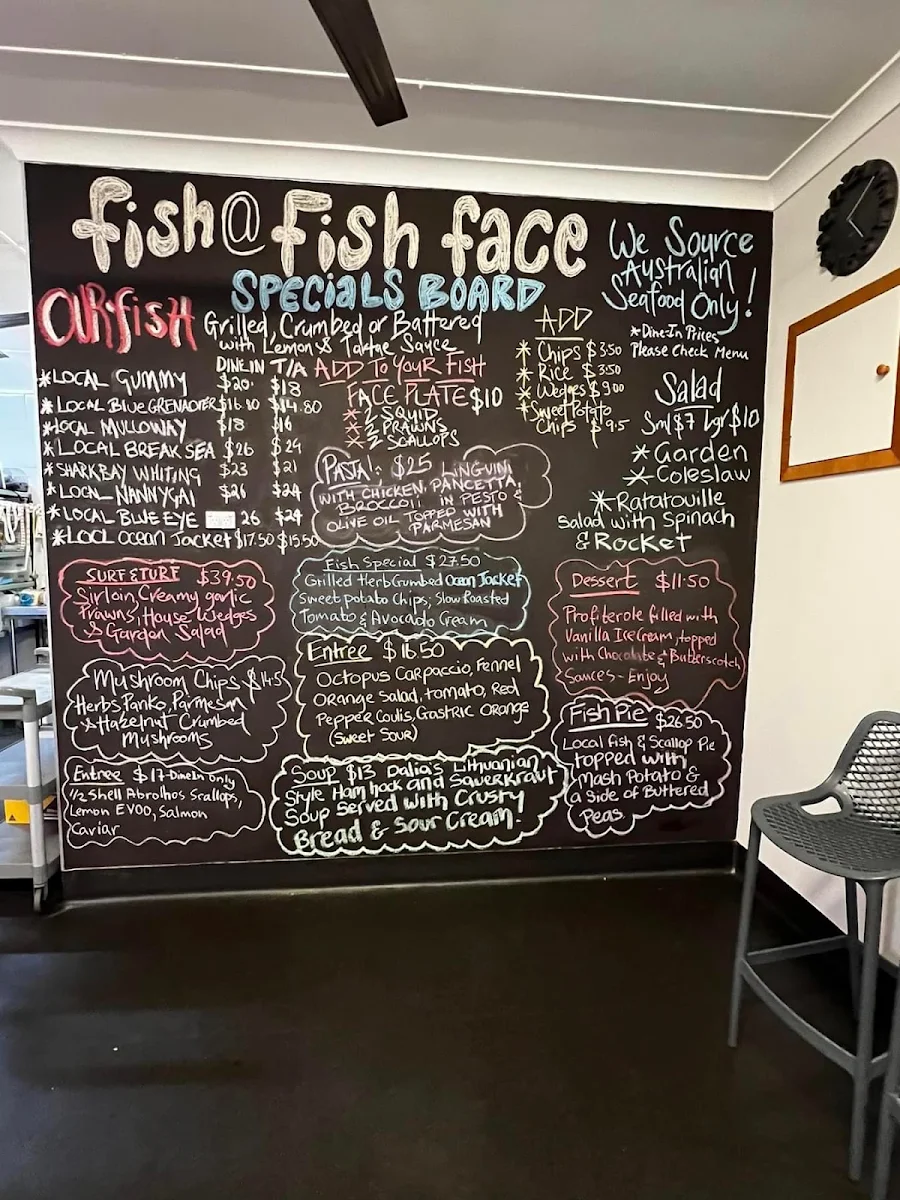 fish@Fish face
SPECIALS BOARD
We Source
Australian
Seafood Only!
*Dine-In Prices
Please Check Menu
Grilled, Crumbed or Battered
with Lemon & Tartae Sauce
DINE IN T/A
*LOCAL GUMMY $20. $18
*LOCAL BLUE GRENADIER $16.80 $14.80
*LOCAL MULLOWAY $18 $16
*LOCAL BREAK SEA $26 $24
*SHARKBAY WHITING $23 $21
*LOCAL NANNYGAI $26 $24
*LOCAL BLUE EYE 26 $24
*LOCL OCEAN JACKET $17.50 $15.50
ADD TO YOUR FISH
FACE PLATE $10
*2 SQUID
*2 PRAWNS
*2 SCALLOPS
ADD
*Chips $3.50
*Rice $3.50
*Wedges $9.00
*Sweet Potato
Chips $9.5
Salad
Sml $7 Lgr $10
*Garden
*Coleslaw
*Ratatouille
Salad with Spinach
& Rocket
PASTA! $25 LINGUINI
WITH CHICKEN, PANCETTA,
BROCCOLI IN PESTO &
OLIVE OIL TOPPED WITH
PARMESAN
SURF & TURF $39.50
Sirloin, Creamy garlic
Prawns, House Wedges
& Garden Salad
Fish Special $27.50
Grilled Herb Crumbed Ocean Jacket
Sweet potato Chips, Slow Roasted
Tomato & Avocado Cream
Dessert $11.50
Profiterole filled with
Vanilla Ice Cream, topped
with Chocolate & Butterscotch
Sauces - Enjoy
Mushroom Chips $14.5
Herbs, Panko, Parmesan
& Hazelnut Crumbed
Mushrooms
Entree $16.50
Octopus Carpaccio, Fennel
Orange Salad, tomato, Red
Pepper Coulis, Gastric Orange
(Sweet Sour)
Fish Pie $26.50
Local fish & Scallop Pie
topped with
Mash Potato &
a Side of Buttered
Peas.
Entree $17 Dine In Only
1/2 Shell Abrolhos Scallops,
Lemon EVOO, Salmon
Caviar
Soup $13 Dalia's Lithuanian
Style Ham hock and Sauerkraut
Soup Served with Crusty
Bread & Sour Cream!